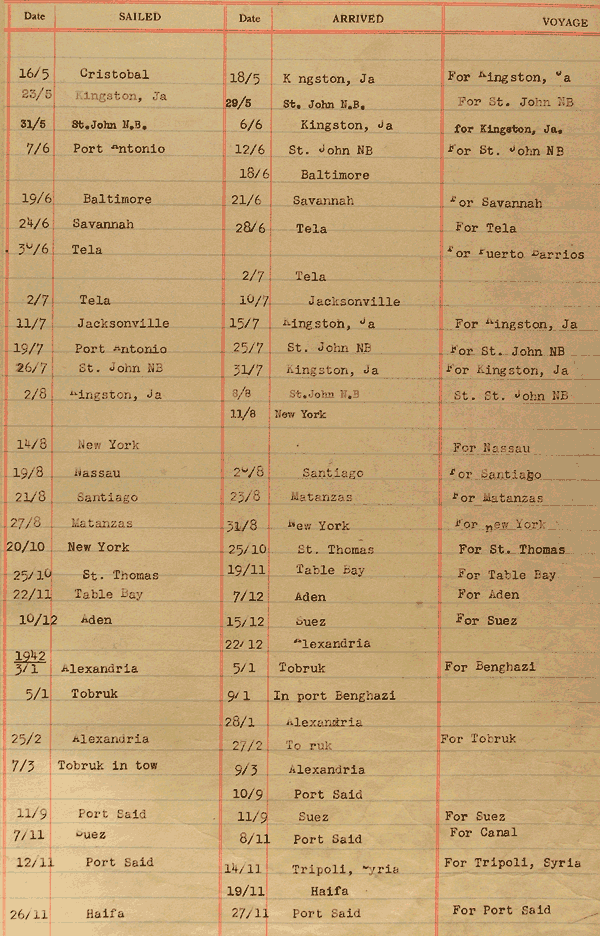 Date SAILED Date ARRIVED VOYAGE
16/5 Cristobal 18/5 K ngston, Ja For Kingston, Ja
23/5 Kingston, Ja 29/5 St. John N.B. For St. John NB
31/5 St.John N.B. 6/6 Kingston, Ja for Kingston, Ja.
7/6 Port Antonio 12/6 St. John NB For St. John NB
18/6 Baltimore
19/6 Baltimore 21/6 Savannah For Savannah
24/6 Savannah 28/6 Tela For Tela
30/6 Tela For Puerto Barrios
2/7 Tela
2/7 Tela 10/7 Jacksonville
11/7 Jacksonville 15/7 Kingston, Ja For Kingston, Ja
19/7 Port Antonio 25/7 St. John NB For St. John NB
26/7 St. John NB 31/7 Kingston, Ja For Kingston, Ja
2/8 Kingston, Ja 8/8 St.John N.B St. St. John NB
11/8 New York
14/8 New York For Nassau
19/8 Nassau 20/8 Santiago For Santiago
21/8 Santiago 23/8 Matanzas For Matanzas
27/8 Matanzas 31/8 New York For new York
20/10 New York 25/10 St. Thomas For St. Thomas
25/10 St. Thomas 19/11 Table Bay For Table Bay
22/11 Table Bay 7/12 Aden For Aden
10/12 Aden 15/12 Suez For Suez
22/12 Alexandria
1942
3/1 Alexandria 5/1 Tobruk For Benghazi
5/1 Tobruk 9/1 In port Benghazi
28/1 Alexandria
25/2 Alexandria 27/2 To ruk For Tobruk
7/3 Tobruk in tow 9/3 Alexandria
10/9 Port Said
11/9 Port Said 11/9 Suez For Suez
7/11 Suez 8/11 Port Said For Canal
12/11 Port Said 14/11 Tripoli, Syria For Tripoli, Syria
19/11 Haifa
26/11 Haifa 27/11 Port Said For Port Said